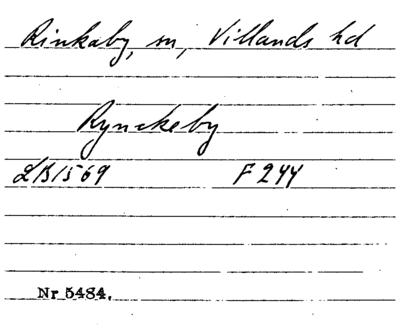 Rinkaby, sn, Villands hd
Rynckeby
LB 1569 F 244
Nr 5484.